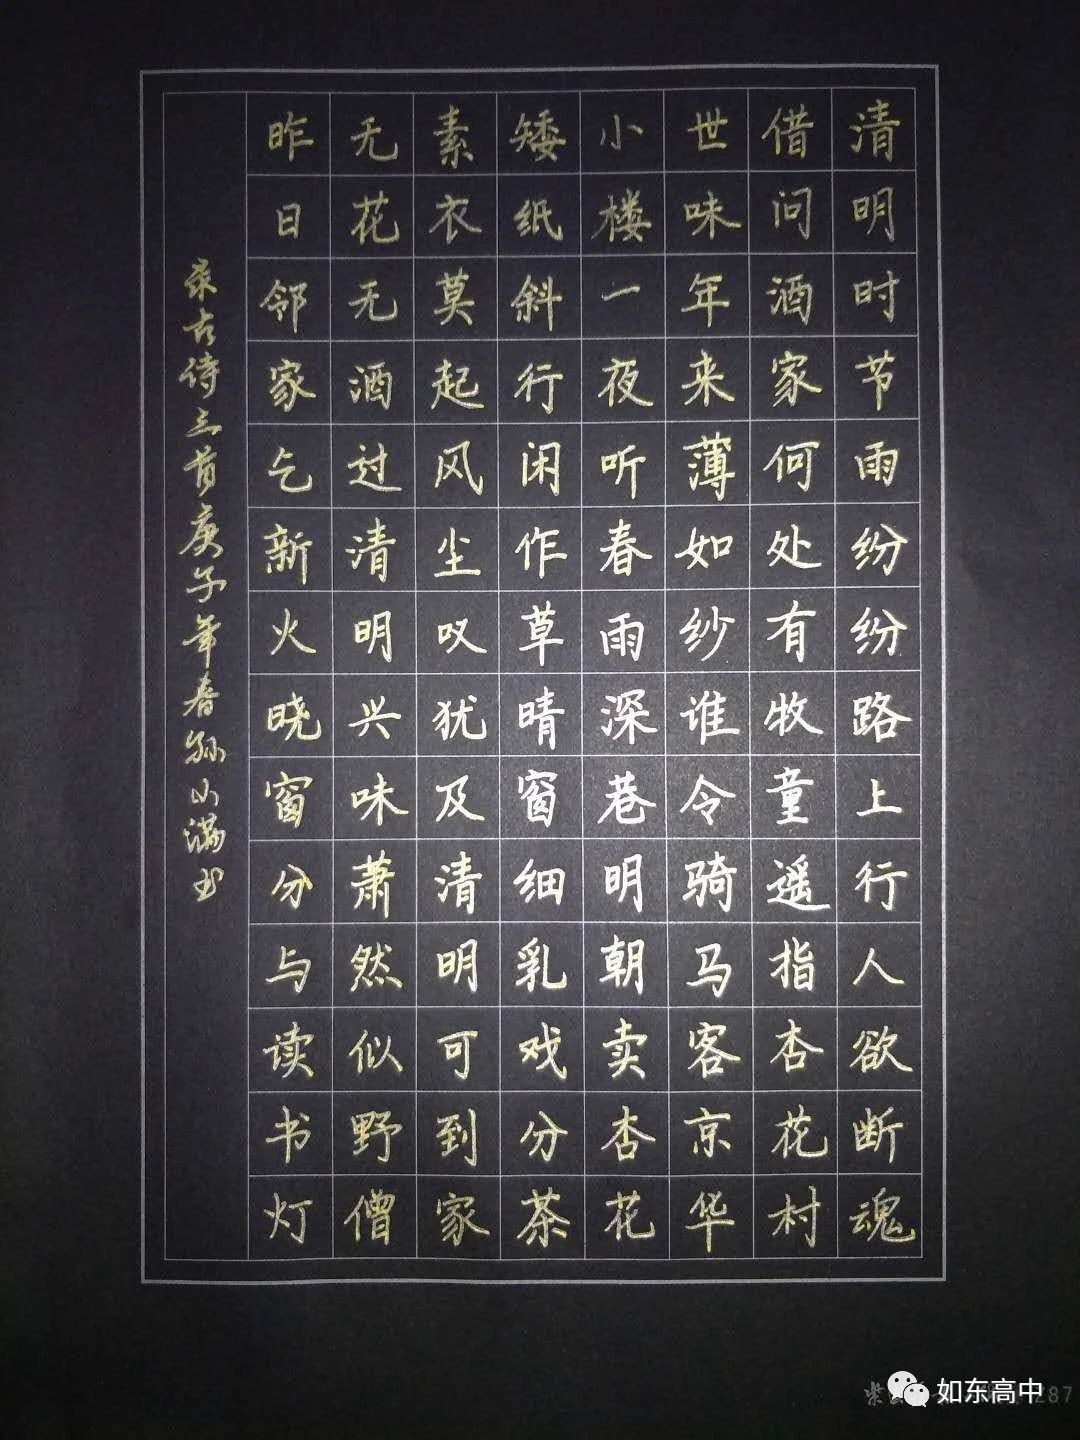 清明时节雨纷纷路上行人欲断魂
借问酒家何处有牧童遥指杏花村
世味年来薄如纱谁令骑马客京华
小楼一夜听春雨深巷明朝卖杏花
矮纸斜行闲作草晴窗细乳戏分茶
素衣莫起风尘叹犹及清明可到家
无花无酒过清明兴味萧然似野僧
昨日邻家乞新火晓窗分与读书灯
录古诗三首庚子年春孙小满书
如东高中
287